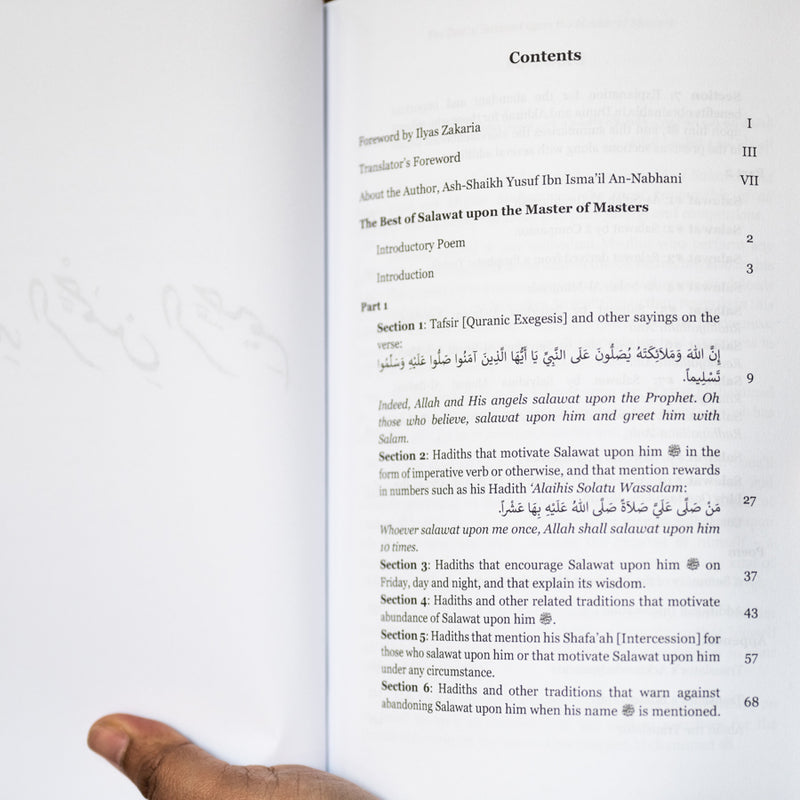 Contents
Foreword by Ilyas Zakaria I
Translator's Foreword III
About the Author, Ash-Shaikh Yusuf Ibn Isma'il An-Nabhani VII
The Best of Salawat upon the Master of Masters
Introductory Poem 2
Introduction 3
Part 1
Section 1: Tafsir [Quranic Exegesis] and other sayings on the
verse:
إِنَّ اللهَ وَمَلَائِكَتَهُ يُصَلُّونَ عَلَى النَّبِيِّ يَا أَيُّهَا الَّذِينَ آمَنُوا صَلُّوا عَلَيْهِ وَسَلِّمُوا
تَسْلِيماً. 9
Indeed, Allah and His angels salawat upon the Prophet. Oh
those who believe, salawat upon him and greet him with
Salam.
Section 2: Hadiths that motivate Salawat upon him ﷺ in the
form of imperative verb or otherwise, and that mention rewards
in numbers such as his Hadith 'Alaihis Solatu Wassalam: 27
مَنْ صَلَّى عَلَيَّ صَلَاةً صَلَّى اللهُ عَلَيْهِ بِهَا عَشْراً.
Whoever salawat upon me once, Allah shall salawat upon him
10 times.
Section 3: Hadiths that encourage Salawat upon him ﷺ on
Friday, day and night, and that explain its wisdom. 37
Section 4: Hadiths and other related traditions that motivate
abundance of Salawat upon him ﷺ. 43
Section 5: Hadiths that mention his Shafa'ah [Intercession] for
those who salawat upon him or that motivate Salawat upon him 57
under any circumstance.
Section 6: Hadiths and other traditions that warn against
abandoning Salawat upon him when his name ﷺ is mentioned. 68